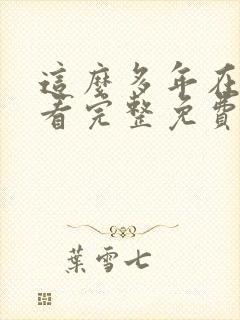 這麼多年在
看完整免費
葉雪七